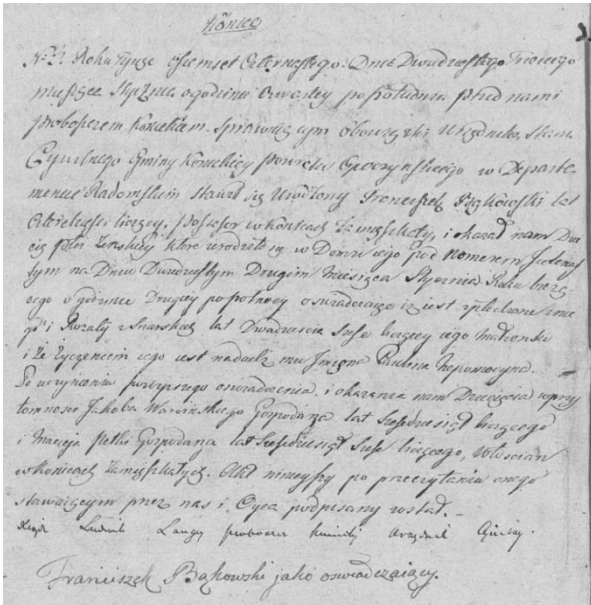 Koniec
Nr 4. Roku Tysiąc osiemset czternastego. Dnia Dwudziestego Trzeciego
miesiąca Stycznia o godzinie czwartey po południu przed nami
Proboszczem Konieckim. sprawuiącym obowiązki Urzędnika Stanu
Cywilnego Gminy Konieckiey Powiatu w Departa-
mencie Radomskim stawił się Urodzony Franciszek Bąkowski lat
czterdzieści liczący. Possesor w Końcach zamięszkały, i okazał nam Dzie
cię płci żeńskiey które urodziło się w Domu iego pod Numerem Jedenas
tym na Dniu Dwudziestym Drugim miesiąca Stycznia Roku bieżą-
cego o godzinie Drugiey po północy oswiadczaiąc iż iest spłodzone z nie
go i Rozalij z lat Dwadzieścia Sześć liczącey iego Małżonki
i że życzeniem iego iest nadać mu Imiona Nepomocyna.
Po uczynieniu powyższego oswiadczenia i okazania nam Dziecięcia w przy
tomnosci Jakóba Gospodarza lat Sześćdziesiąt liczącego
i Macieja Petki Gospodarza lat Sześćdziesiąt Sześć liczącego, Włościan
w Końcach zamięszkałych. Akt ninieyszy po przeczytaniu onego
stawaiącym przez nas i Oyca podpisany został. –
Xiądz Ludwik Proboszcz Urzędnik Cywilny.
Franciszek Bąkowski jako oswiadczaiący.